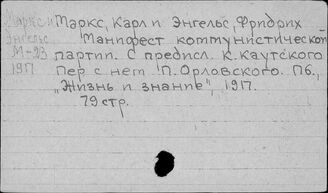 Маркс, Карл и Энгельс, Фридрих
Маркс и
Энгельс
М-23
1917
Манифест коммунистической
партии. С предисл. К. Каутского
Пер с нем П. Орловского. Пб.,
„Жизнь и знание", 1917.
79 стр.